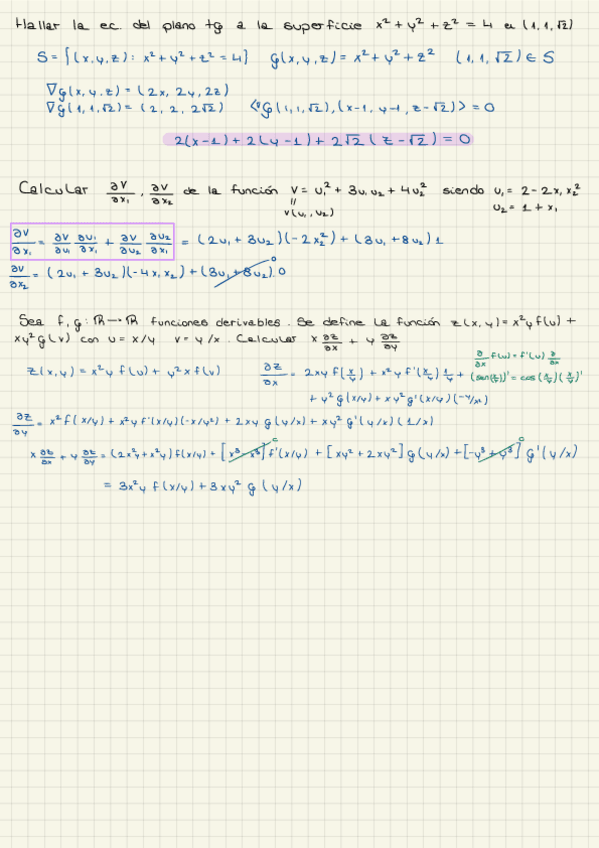 Hallar la ec. del plano tg a la superficie x² + y² + z² = 4 en (1, 1, √2)
S = {(x, y, z) : x² + y² + z² = 4} g(x, y, z) = x² + y² + z² (1, 1, √2) ∈ S
∇g(x, y, z) = (2x, 2y, 2z)
∇g(1, 1, √2) = (2, 2, 2√2) <∇g(1, 1, √2), (x-1, y-1, z-√2)> = 0
2(x-1) + 2(y-1) + 2√2(z-√2) = 0
Calcular ∂V/∂x₁, ∂V/∂x₂ de la función V = u₁² + 3u₁u₂ + 4u₂² siendo u₁ = 2 - 2x₁x₂²
=
V(u₁, u₂)
u₂ = 1 + x₁
∂V/∂x₁ = ∂V/∂u₁ ∂u₁/∂x₁ + ∂V/∂u₂ ∂u₂/∂x₁ = (2u₁ + 3u₂)(-2x₂²) + (3u₁ + 8u₂)1
∂V/∂x₂ = (2u₁ + 3u₂)(-4x₁x₂) + (3u₁ + 8u₂).0 0
Sea f, g : ℝ → ℝ funciones derivables. Se define la función z(x, y) = x²y f(u) +
xy² g(v) con u = x/y v = y/x. Calcular x ∂z/∂x + y ∂z/∂y
∂/∂x f(u) = f'(u) ∂/∂x
z(x, y) = x²y f(u) + y²x f(v) ∂z/∂x = 2xy f(x/y) + x²y f'(x/y) 1/y +
(sen(x/y))' = cos(x/y)(x/y)'
+ y² g(x/y) + xy² g'(x/y)(-y/x²)
∂z/∂y = x² f(x/y) + x²y f'(x/y)(-x/y²) + 2xy g(y/x) + xy² g'(y/x)(1/x)
x ∂z/∂x + y ∂z/∂y = (2x²y + x²y) f(x/y) + [x³ - x³] 0 f'(x/y) + [xy² + 2xy²] g(y/x) + [-y³ + y³] 0 g'(y/x)
= 3x²y f(x/y) + 3xy² g(y/x)